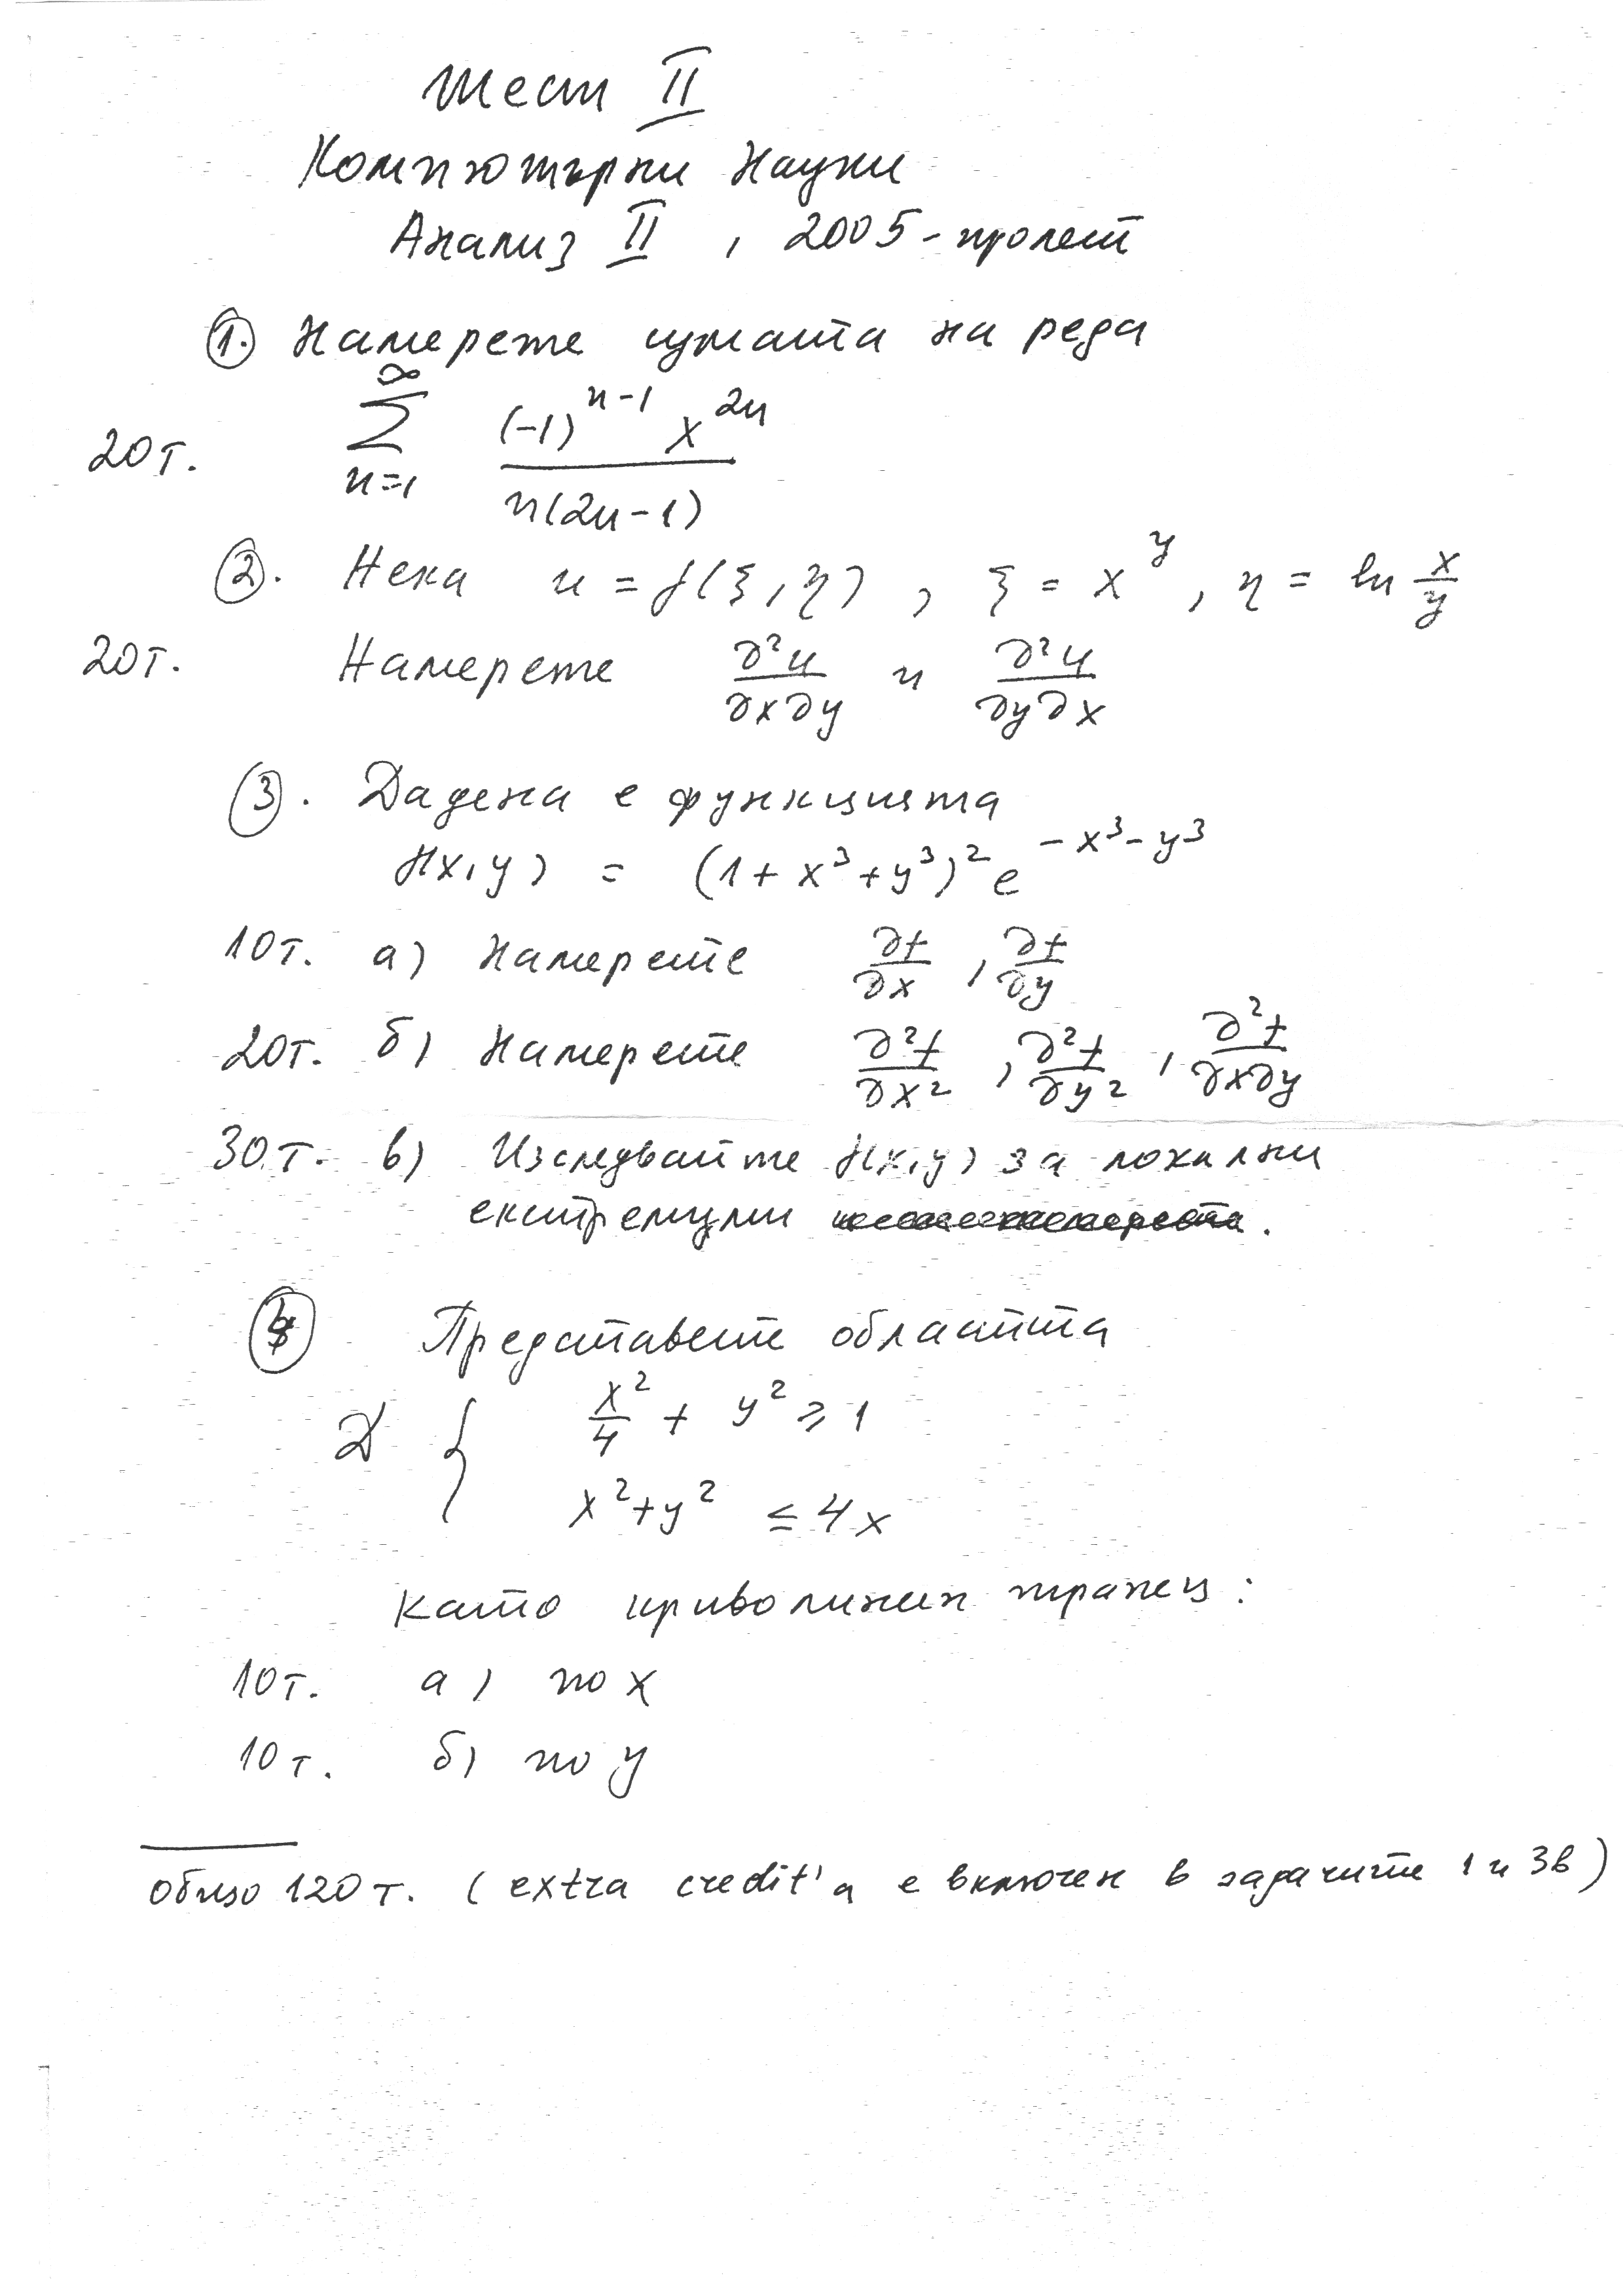 Тест II
Компютърни науки
Анализ II, 2005 - пролет
1. Намерете сумата на реда
20т. ∑_{n=1}^{∞} (-1)^{n-1} x^{2n} / n(2n-1)
2. Нека u = f(ξ, η), ξ = x^y, η = ln x/y
20т. Намерете ∂²u/∂x∂y и ∂²u/∂y∂x
3. Дадена е функцията
f(x,y) = (1 + x³ + y³)² e^{-x³-y³}
10т. а) Намерете ∂f/∂x, ∂f/∂y
20т. б) Намерете ∂²f/∂x², ∂²f/∂y², ∂²f/∂x∂y
30т. в) Изследвайте f(x,y) за локални
екстремуми .
4 Представете областта
D { x²/4 + y² ≥ 1
x² + y² ≤ 4x
като криволинеен трапец:
10т. а) по x
10т. б) по y
общо 120т. (extra credit'а е включен в задачите 1 и 3в)